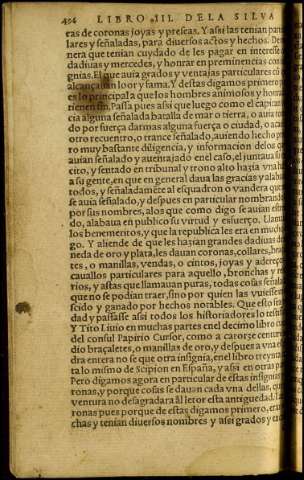 404 LIBRO III. DE LA SILVA
eas de coronas joyas y preseas. Y assi las tenian parti
lares y señaladas, para diuersos actos y hechos. De
nera que tenian cuydado de les pagar en interesse
dadiuas y mercedes, y honrar en preminencias con
gnias. El que auia grados y ventajas particulares
alcançauan loor y fama. Y destas digamos primero
es lo principal a que los hombres animosos y honra
tienen fin. Passa pues assi que luego como el capitan
cia alguna señalada batalla de mar o tierra, o auia
do por fuerça darmas alguna fuerça o ciudad, o aca
otro recuentro, o trance señalado, auiendo hecho
ro muy bastante diligencia, y informacion delos
auian señalado y auentajado enel caso, el juntaua su
cito, y sentado en tribunal y trono alto hazia vna
a su gente, en que en general daua las gracias y alaba
todos, y señaladamẽte al esquadron o vandera que
se auia señalado, y despues en particular nombrando
por sus nombres, alos que como digo se auian
do, alabaua en publico su virtud y esfuerço. Llam
los benemeritos, y que la republica les era en much
go. Y aliende de que les hazian grandes dadiuas
neda de oro y plata, les dauan coronas, collares,
tes, o manillas, vendas, o cintos, joyas y adereç
cauallos particulares para aquello, bronchas y
rios, y astas que llamauan puras, todas cosas señala
que no se podian traer, sino por quien las vuiesse
scido y ganado por hechos notables. Que esto
dad y passasse assi todos los historiadores lo testi
Y Tito Liuio en muchas partes enel decimo libro
del consul Papirio Cursor, como a catorze centur
dio braçaletes, o manillas de oro, y despues a vna
dra entera no se que otra insignia, enel libro treynta
ta lo mismo de Scipion en España, y assi en otras
Pero digamos agora en particular de estas insignias
ronas, y porque cosas se dauan cada vna dellas,
ventura no desagradara al letor esta antiguedad.
ronas pues porque de estas digamos primero, eran
chas y tenian diuersos nombres y assi grados y